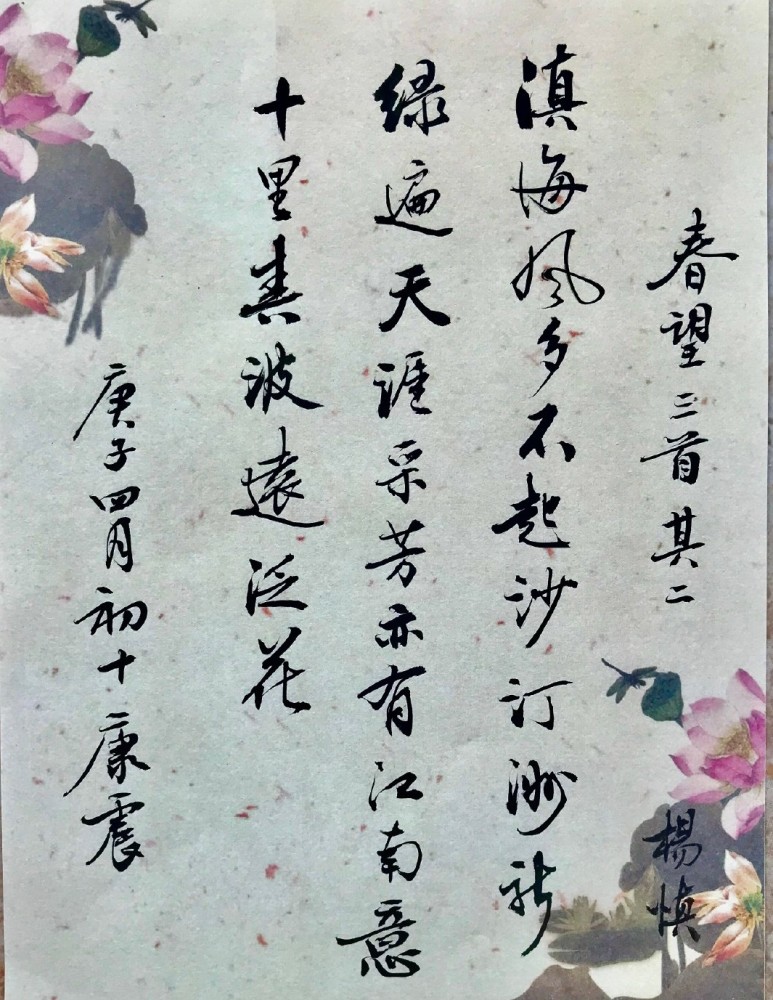 春望三首其二 楊慎
滇海风多不起沙汀洲新
绿遍天涯采芳亦有江南意
十里春波遠泛花
庚子四月初十康震